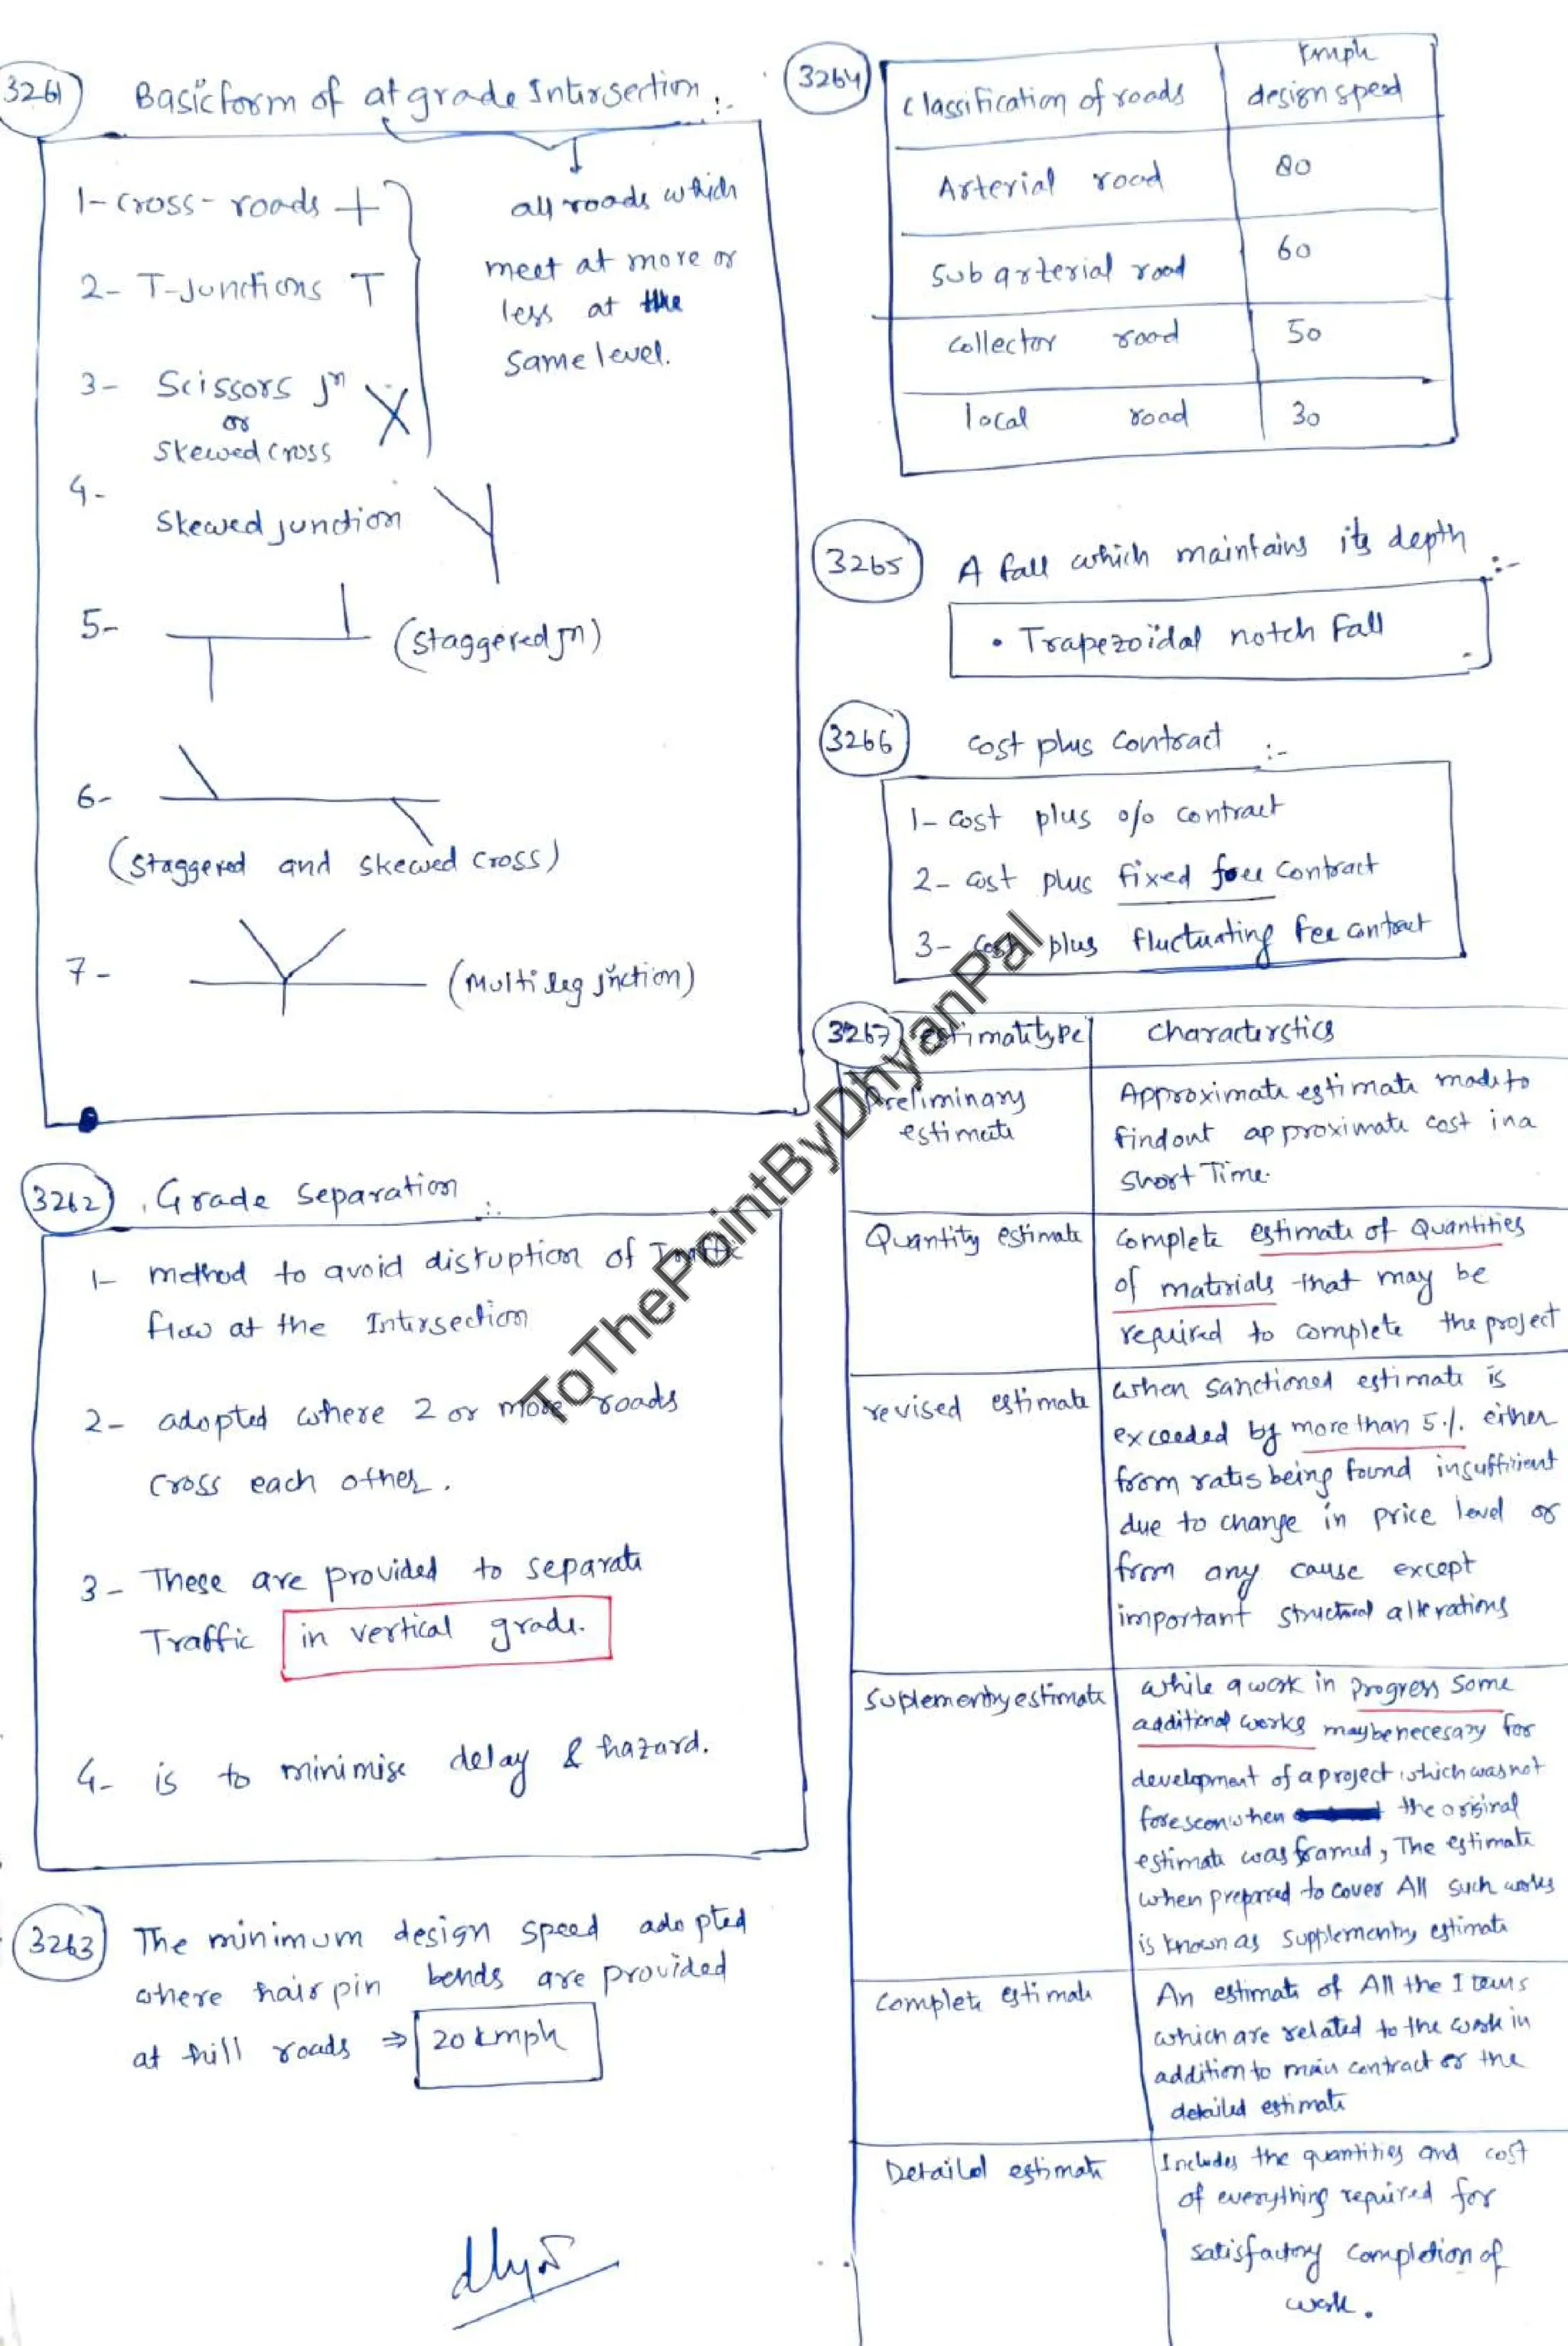 3261
Basic form of at grade Intersection :-
1- Cross-roads
2- T-Junctions
3- Scissors jn
or
Skewed cross
4-
Skewed junction
5-
(staggered jn)
6-
(staggered and skewed cross)
7-
(multi leg jnction)
all roads which
meet at more or
less at the
same level.
3262
Grade separation :-
1- method to avoid disruption of Traffic
flow at the Intersection
2- adopted where 2 or more roads
cross each other.
3- These are provided to separate
Traffic in vertical grade.
4- is to minimise delay & hazard.
3263
The minimum design speed adopted
where hair pin bends are provided
at hill roads ⇒ 20 kmph
3264
Classification of roads
kmph
design speed
Arterial road 80
Sub arterial road 60
Collector road 50
local road 30
3265
A fall which maintains its depth :-
• Trapezoidal notch Fall
3266
Cost plus contract :-
1- Cost plus % contract
2- Cost plus fixed fee contract
3- Cost plus fluctuating fee contract
3267
Estimate type
characterstics
Preliminary
estimate
Approximate estimate made to
findout approximate cost in a
short Time.
Quantity estimate
Complete estimate of Quantities
of materials that may be
required to complete the project
revised estimate
when sanctioned estimate is
exceeded by more than 5%. either
from rates being found insufficient
due to change in price level or
from any cause except
important structural alterations
Suplementry estimate
while a work in progress some
additional works maybe necesary for
development of a project which was not
foreseen when the original
estimate was framed, The estimate
when prepared to cover All such works
is known as supplementry estimate
Complete estimate
An estimate of All the Items
which are related to the work in
addition to main contract or the
detailed estimate
Detailed estimate
Includes the quantities and cost
of everything required for
satisfactory completion of
work.
ToThePointByDhyanPal